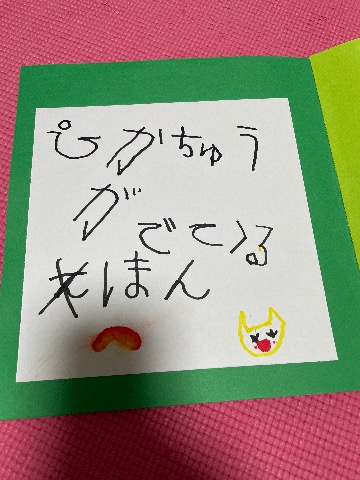 ぴかちゅう
が
でてくる
えほん